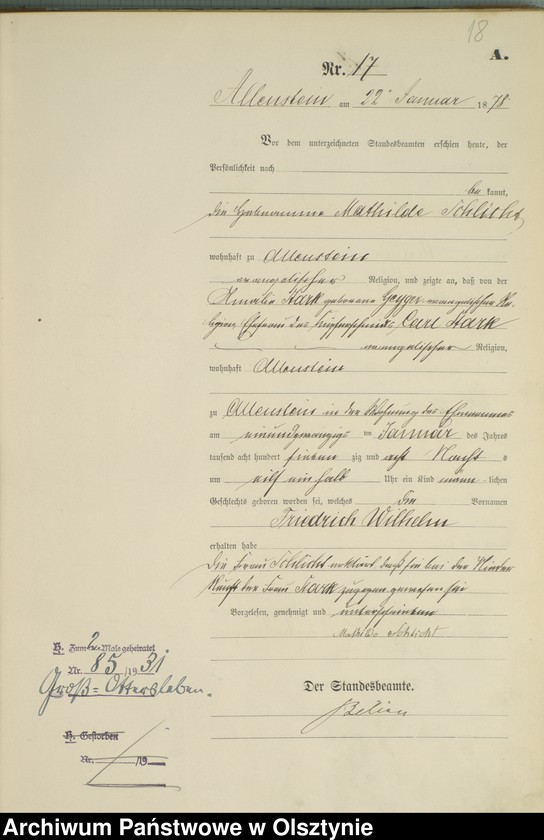 18
A.
Nr. 17
Allenstein am 22 Januar 1878
Vor dem unterzeichneten Standesbeamten erschien heute, der
Persönlichkeit nach
be kannt,
die Hebamme Mathilde Schlicht
wohnhaft zu Allenstein
evangelischer Religion, und zeigte an, daß von der
Amalie Stark geborene Geyger evangelischer Re-
ligion, Ehefrau des Kupferschmieds Carl Stark
evangelischer Religion,
wohnhaft Allenstein
zu Allenstein in der Wohnung des Ehemannes
am einundzwanzigs ten Januar des Jahres
tausend acht hundert sieben zig und acht Nachts
um eilf ein halb Uhr ein Kind männ-lichen
Geschlechts geboren worden sei, welches die Vornamen
Friedrich Wilhelm
erhalten habe
Die Frau Schlicht erklärt daß sie bei der Nieder
kunft der Frau Stark zugegen gewesen sei
Vorgelesen, genehmigt und unterschrieben
Mathilde Schlicht
Der Standesbeamte.
H. Zum 2. Male geheiratet
Nr. 85/1931
Groß=Ottersleben.
H. Gestorben
Nr. /19
Archiwum Państwowe w Olsztynie